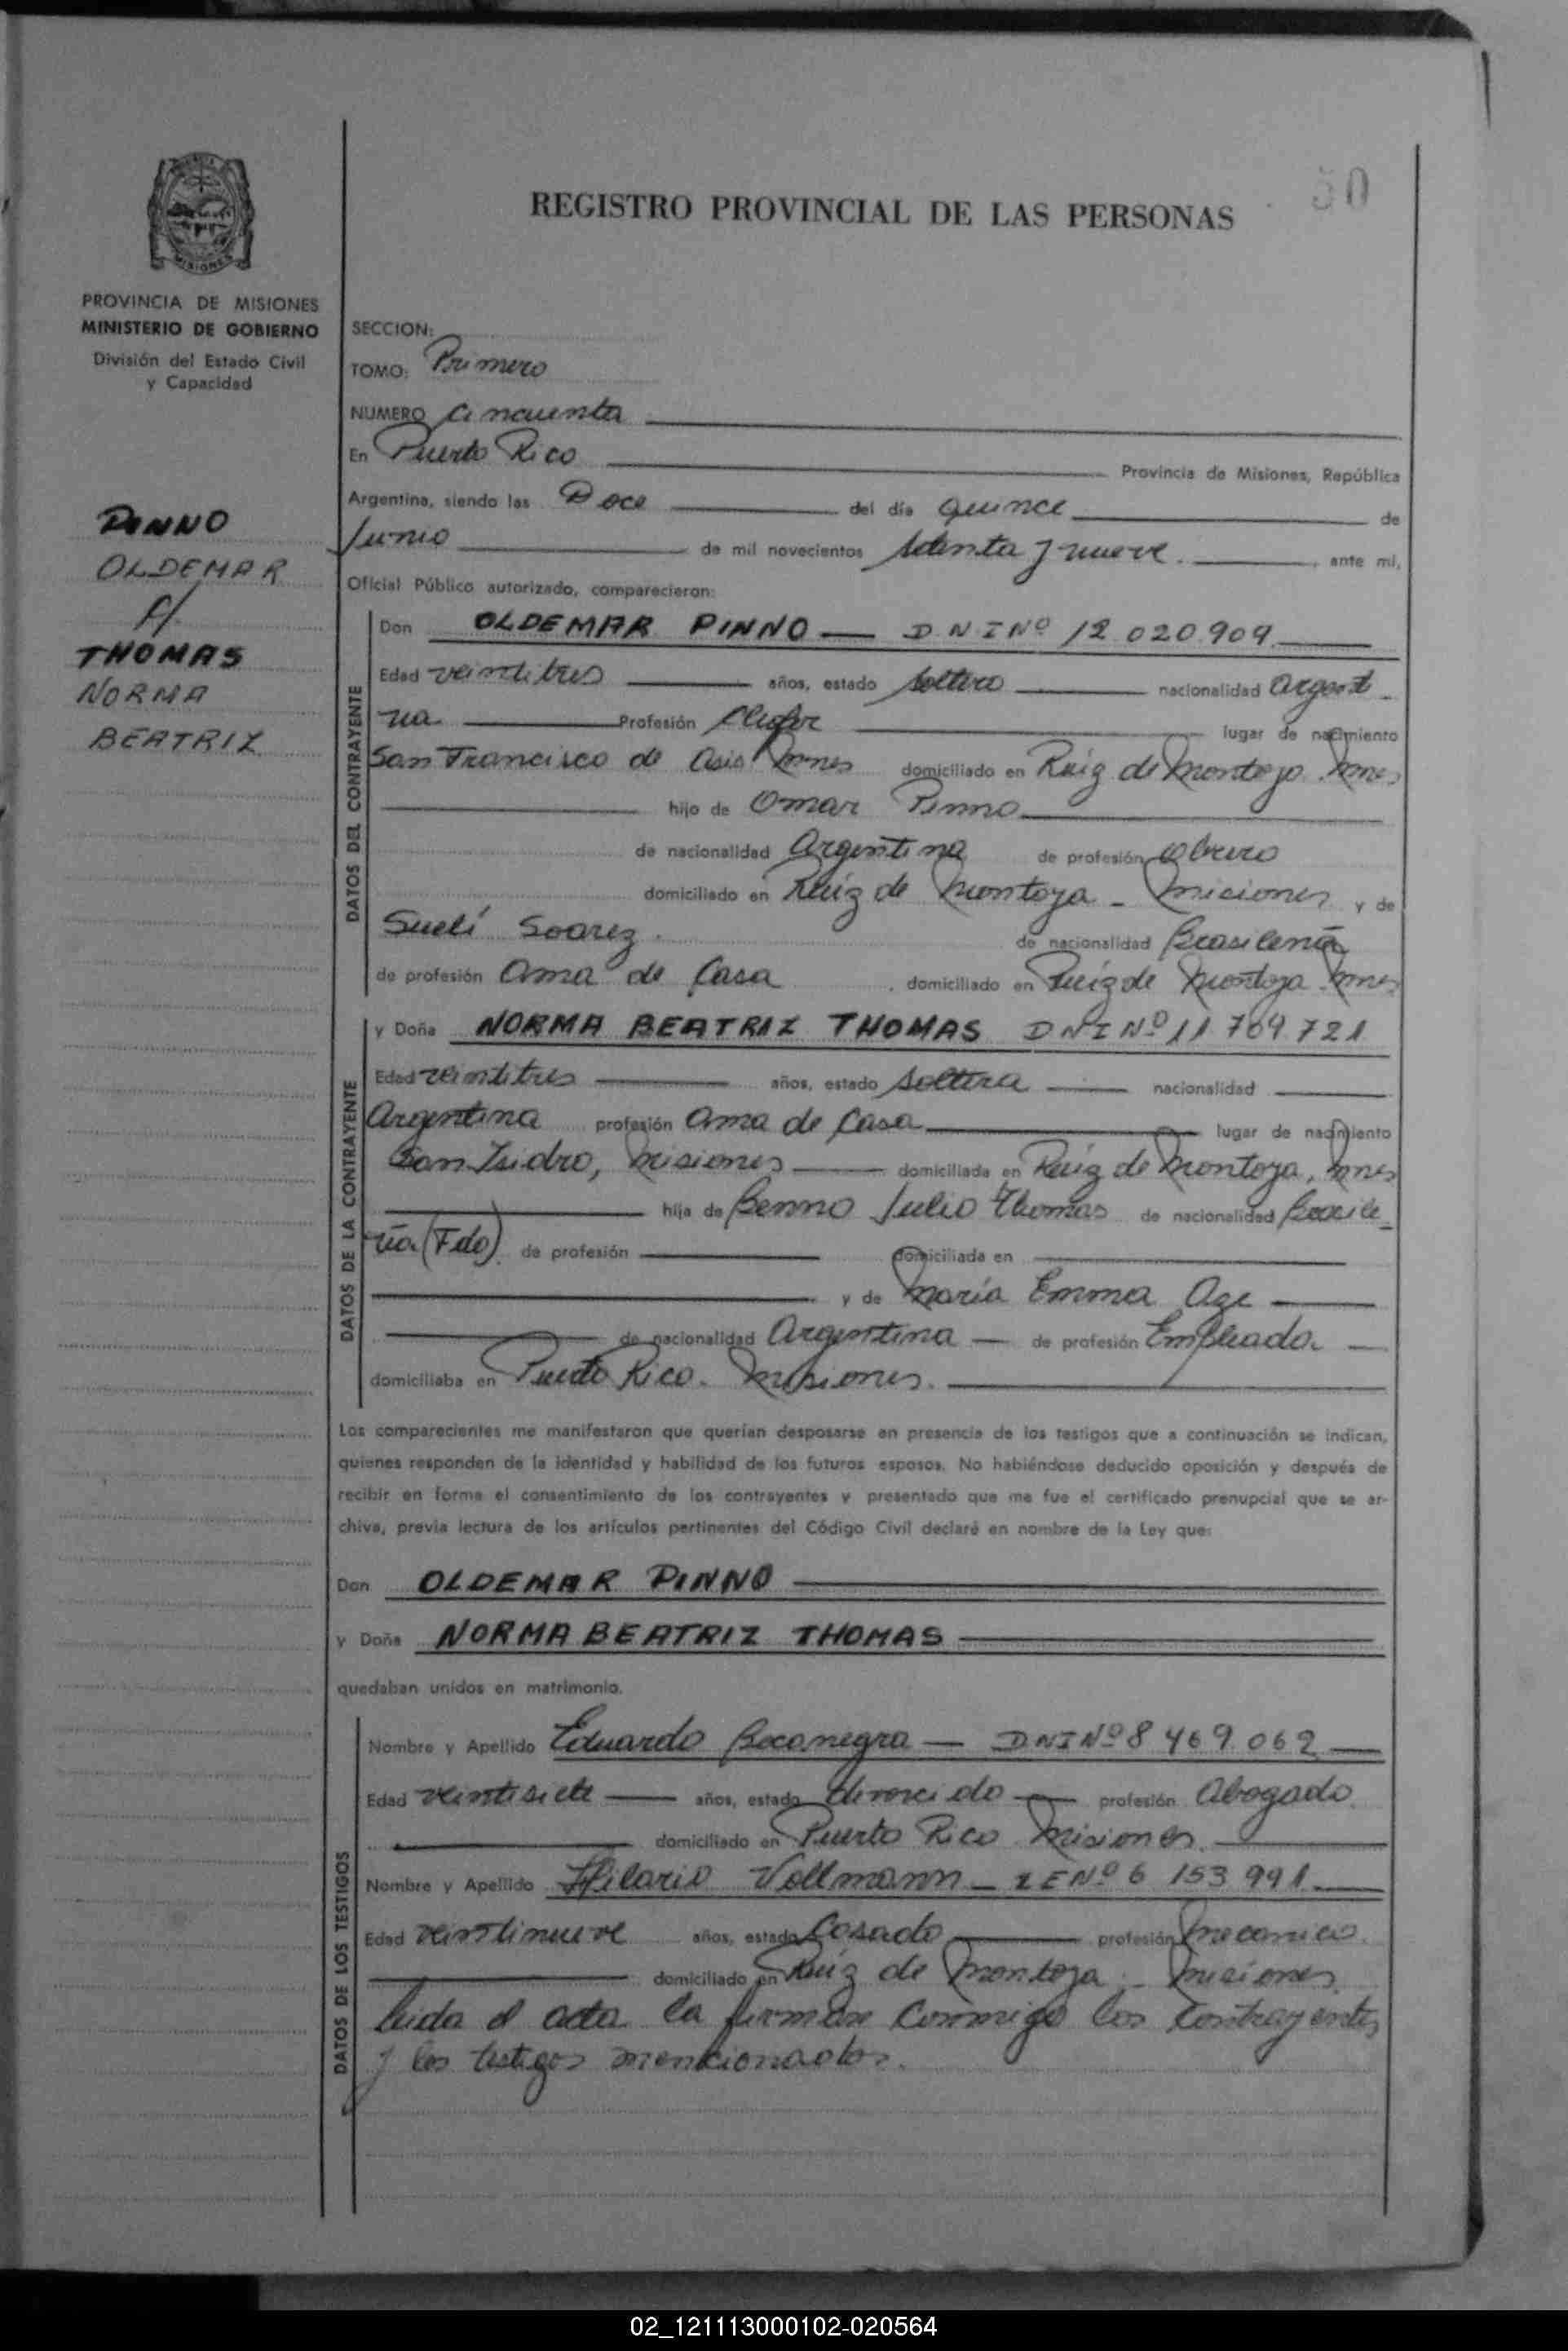 50
REGISTRO PROVINCIAL DE LAS PERSONAS
MISIONES
PROVINCIA DE MISIONES
MINISTERIO DE GOBIERNO
División del Estado Civil
y Capacidad
PINNO
OLDEMAR
c/
THOMAS
NORMA
BEATRIZ
SECCION:
TOMO: Primero
NUMERO Cincuenta
En Puerto Rico Provincia de Misiones, República
Argentina, siendo las Doce del día quince de
Junio de mil novecientos setenta y nueve. ante mi,
Oficial Público autorizado, comparecieron:
DATOS DEL CONTRAYENTE
Don OLDEMAR PINNO — DNI Nº 12 020 909
Edad veintitres años, estado soltero nacionalidad Argenti-
na Profesión Chofer lugar de nacimiento
San Francisco de Asis Mnes domiciliado en Ruiz de Montoya Mnes
hijo de Omar Pinno
de nacionalidad Argentina de profesión Obrero
domiciliado en Ruiz de Montoya - Misiones y de
Suelí Soarez. de nacionalidad Brasileña
de profesión Ama de Casa, domiciliado en Ruiz de Montoya Mnes
DATOS DE LA CONTRAYENTE
y Doña NORMA BEATRIZ THOMAS DNI Nº 11 709 721
Edad veintitres años, estado soltera nacionalidad
Argentina profesión Ama de Casa lugar de nacimiento
San Isidro, Misiones domiciliada en Ruiz de Montoya, Mnes
hija de Benno Julio Thomas de nacionalidad Brasile-
ña (Fdo) de profesión domiciliada en
y de María Emma Age
de nacionalidad Argentina — de profesión Empleada —
domiciliaba en Puerto Rico. Misiones.
Los comparecientes me manifestaron que querían desposarse en presencia de los testigos que a continuación se indican,
quienes responden de la identidad y habilidad de los futuros esposos. No habiéndose deducido oposición y después de
recibir en forma el consentimiento de los contrayentes y presentado que me fue el certificado prenupcial que se ar-
chiva, previa lectura de los artículos pertinentes del Código Civil declaré en nombre de la Ley que:
Don OLDEMAR PINNO
y Doña NORMA BEATRIZ THOMAS
quedaban unidos en matrimonio.
DATOS DE LOS TESTIGOS
Nombre y Apellido Eduardo Bocanegra — DNI Nº 8 469 062
Edad veintisiete años, estado divorciado profesión Abogado
domiciliado en Puerto Rico Misiones.
Nombre y Apellido Hilario Vollmann — LE Nº 6 153 991
Edad veintinueve años, estado Casado profesión Mecanico.
domiciliado en Ruiz de Montoya - Misiones
Leida el acta la firman conmigo los contrayentes
y los testigos mencionados.
02_121113000102-020564